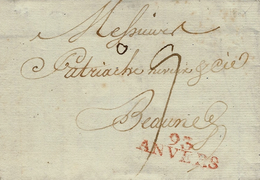 Messieurs
Patriache & Cie
Beaune
93
ANVERS